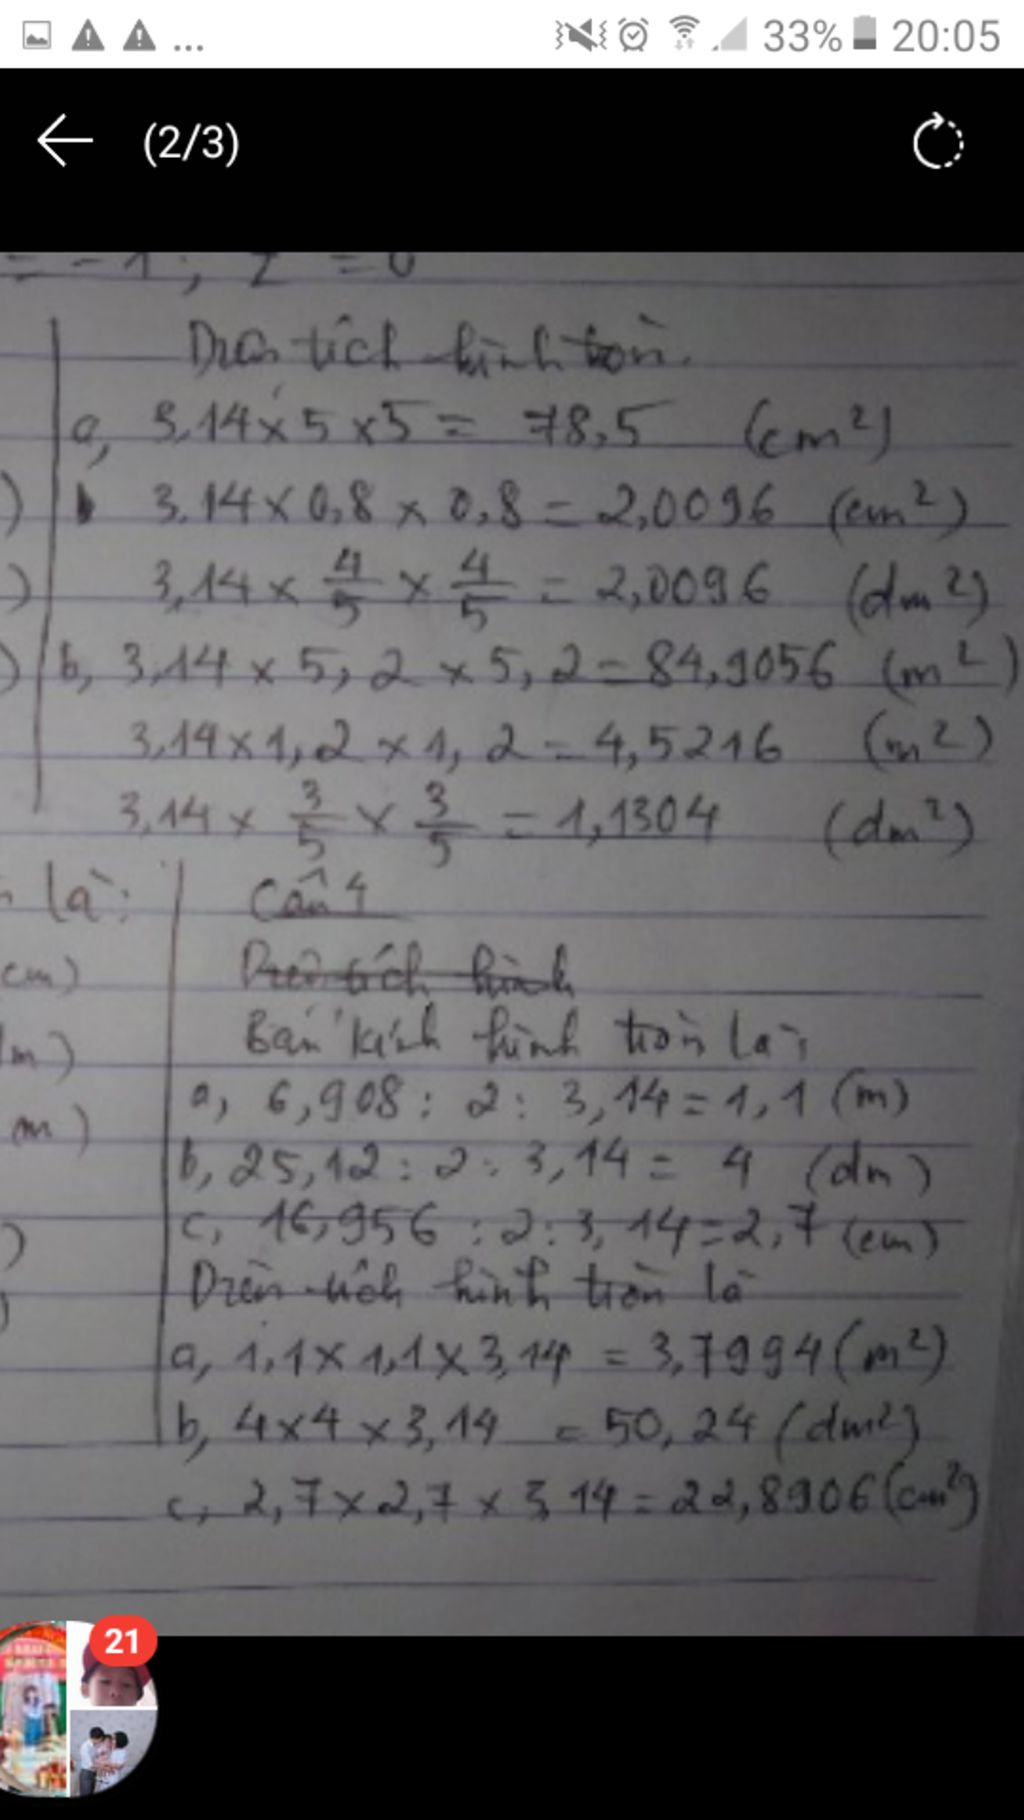 33% 20:05
(2/3)
= -1 ; = 0
Diện tích hình tròn.
a, 3,14 x 5 x 5 = 78,5 (cm²)
) b 3,14 x 0,8 x 0,8 = 2,0096 (cm²)
) 3,14 x 4/5 x 4/5 = 2,0096 (dm²)
) b, 3,14 x 5,2 x 5,2 = 84,9056 (m²)
3,14 x 1,2 x 1,2 = 4,5216 (m²)
3,14 x 3/5 x 3/5 = 1,1304 (dm²)
là: Câu 4
cm) Diện tích hình
m) Bán kính hình tròn là:
a, 6,908 : 2 : 3,14 = 1,1 (m)
m) b, 25,12 : 2 : 3,14 = 4 (dm)
) c, 16,956 : 2 : 3,14 = 2,7 (cm)
Diện tích hình tròn là
a, 1,1 x 1,1 x 3,14 = 3,7994 (m²)
b, 4 x 4 x 3,14 = 50,24 (dm²)
c, 2,7 x 2,7 x 3,14 = 22,8906 (cm²)
21